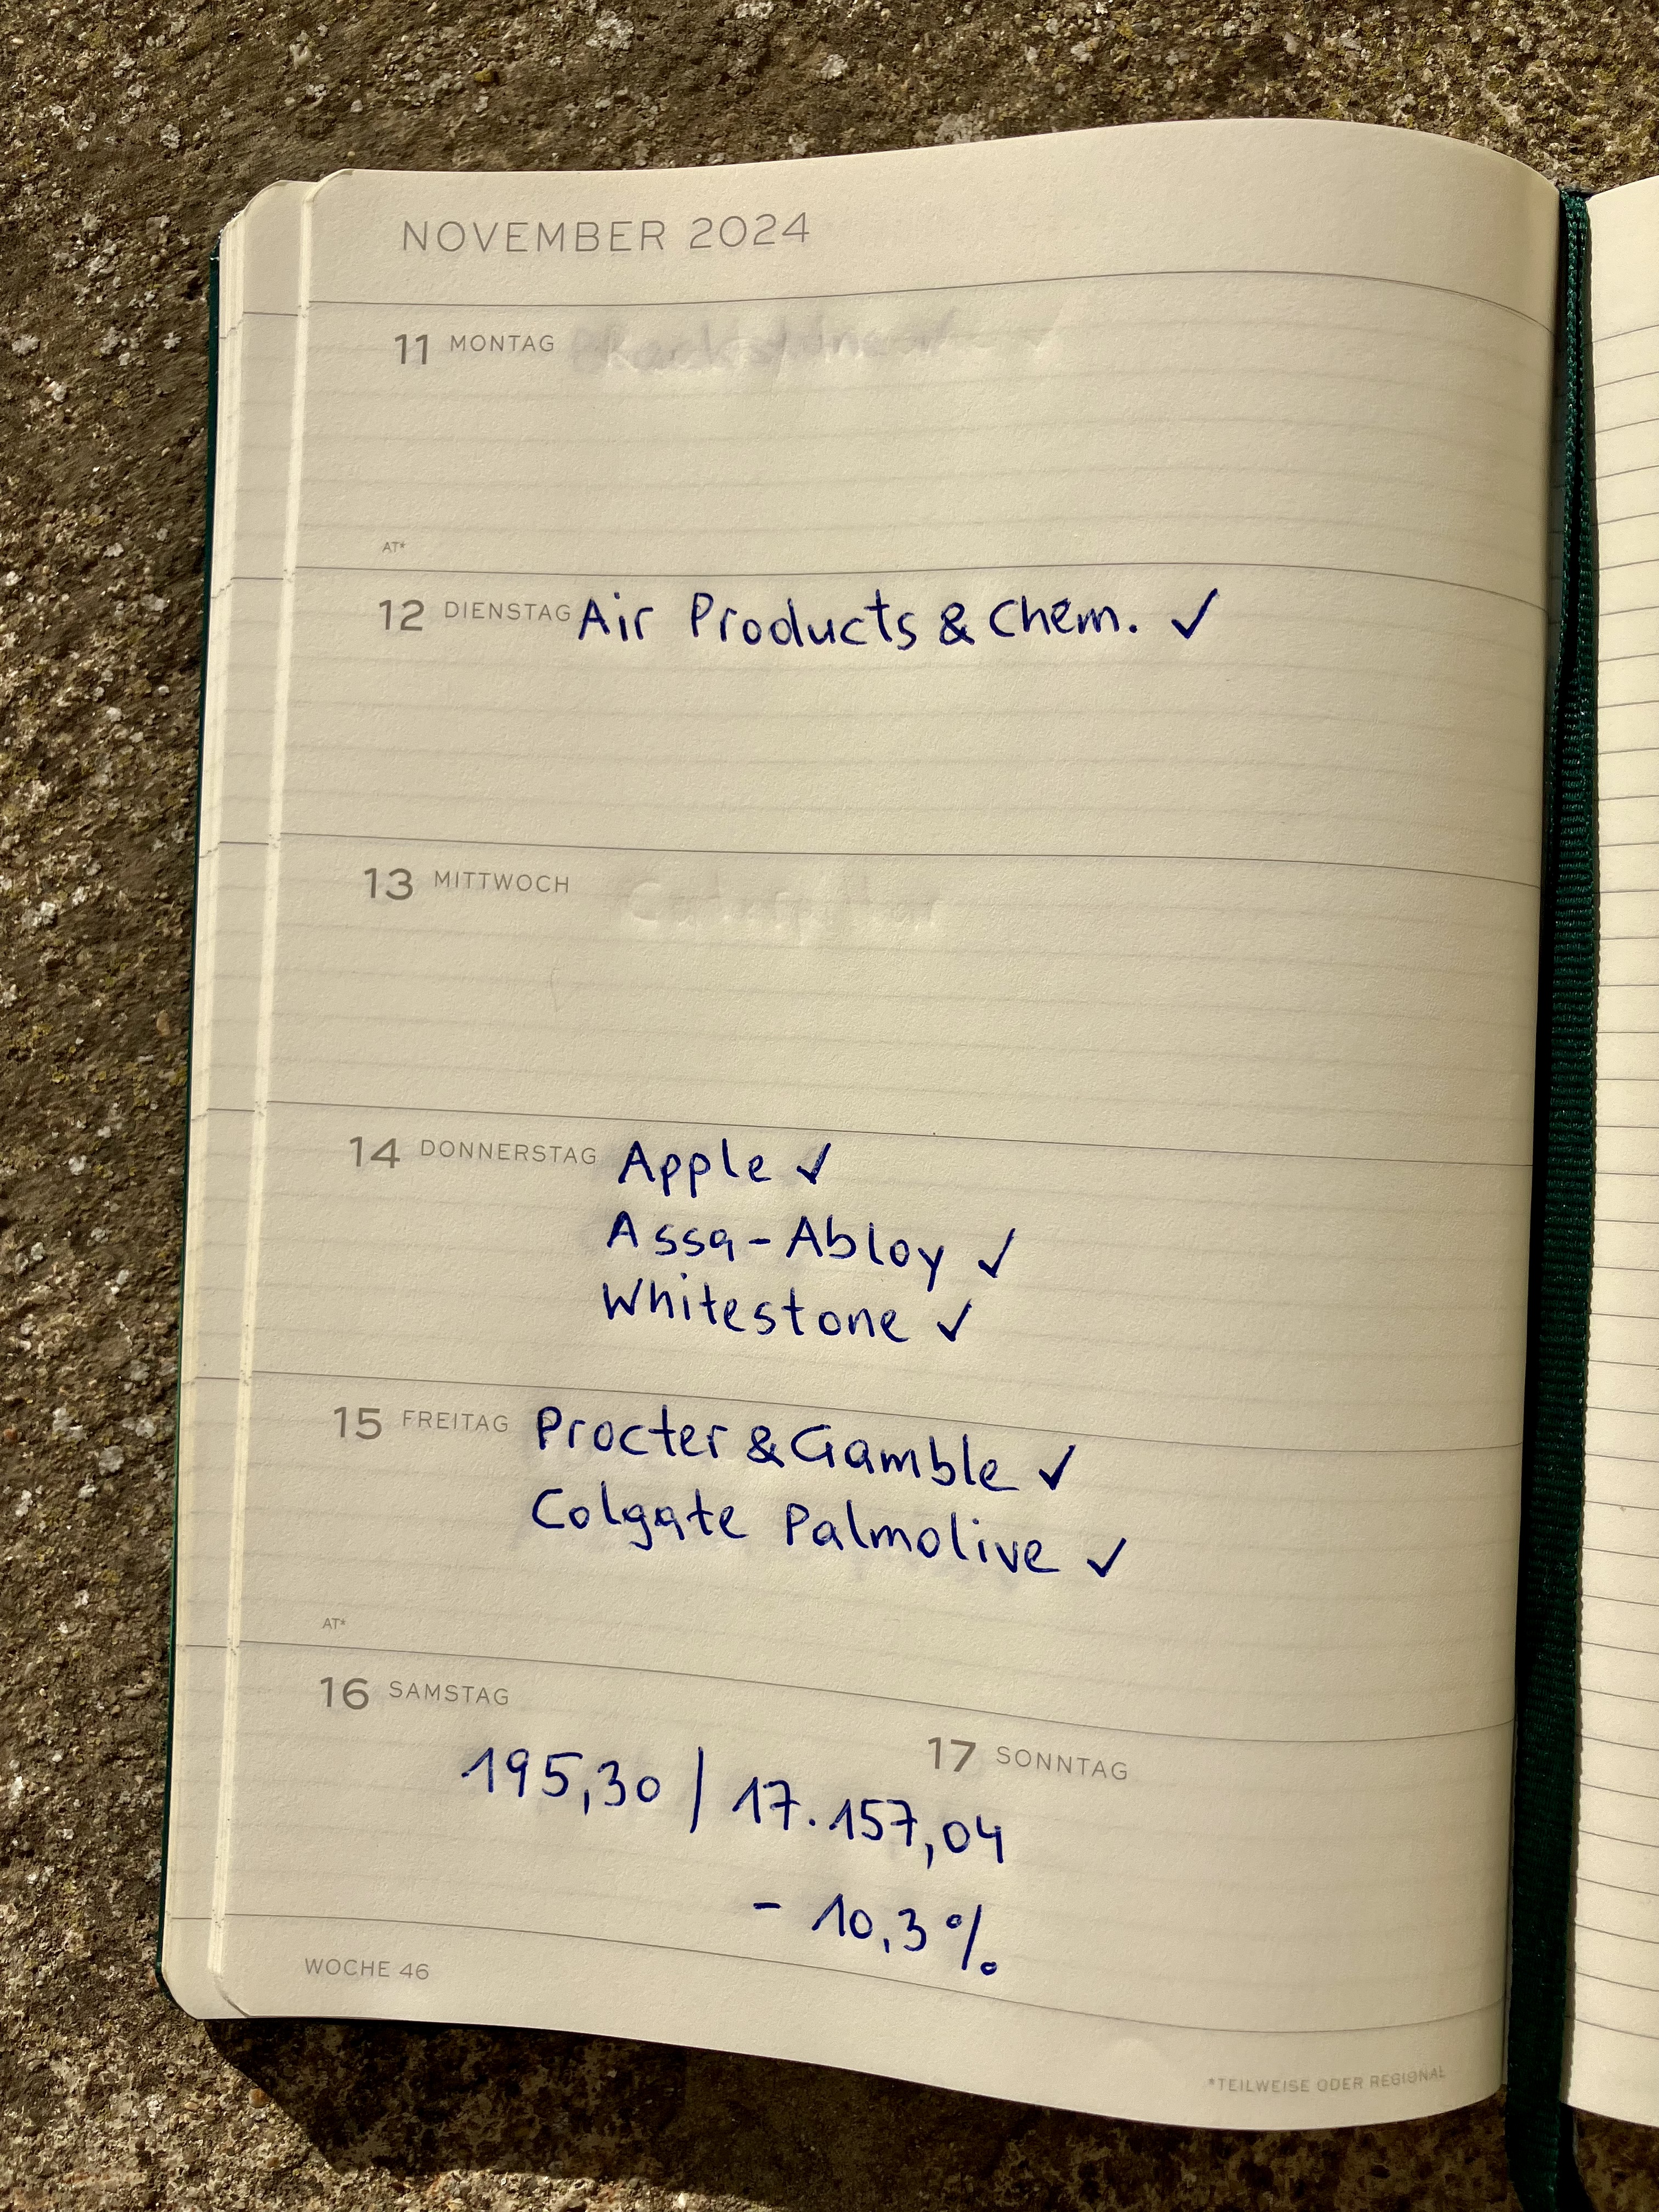 NOVEMBER 2024
11 MONTAG
AT*
12 DIENSTAG Air Products & Chem. ✓
13 MITTWOCH
14 DONNERSTAG Apple ✓
Assa-Abloy ✓
Whitestone ✓
15 FREITAG Procter & Gamble ✓
Colgate Palmolive ✓
AT*
16 SAMSTAG
17 SONNTAG
195,30 / 17.157,04
- 10,3 %
WOCHE 46
*TEILWEISE ODER REGIONAL